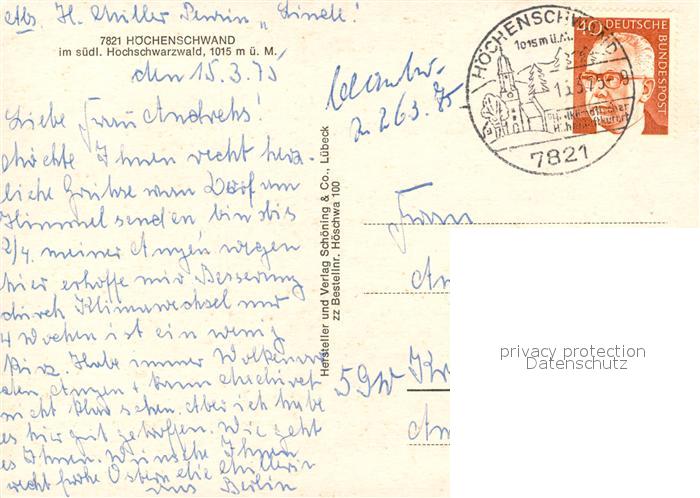 Abs. H. Müller Pension "Lindl"!
7821 HÖCHENSCHWAND
im südl. Hochschwarzwald, 1015 m ü. M.
den 15.3.75
Liebe Frau
Möchte Ihnen recht herz-
liche Grüße vom Dorf am
Himmel senden bin bis
2/4. meiner Augen wegen
hier erhoffe mir Besserung
durch Klimawechsel nur
4 Wochen ist ein wenig
kurz. Habe immer Wolken vor
den Augen + kann
nicht klar sehen. Aber ich habe
es hier gut getroffen. Wie geht
es Ihnen. Wünsche Ihnen
recht frohe Ostern die Müllerin
aus Berlin
26.3.75
Hersteller und Verlag Schöning & Co., Lübeck
zz Bestellnr. Höschwa 100
HÖCHENSCHWAND
1015 m ü. M.
15.3.75-9
Heilklimatischer
Höhenkurort
7821
40
DEUTSCHE
BUNDESPOST
Frau
An
59W Kr
privacy protection
Datenschutz